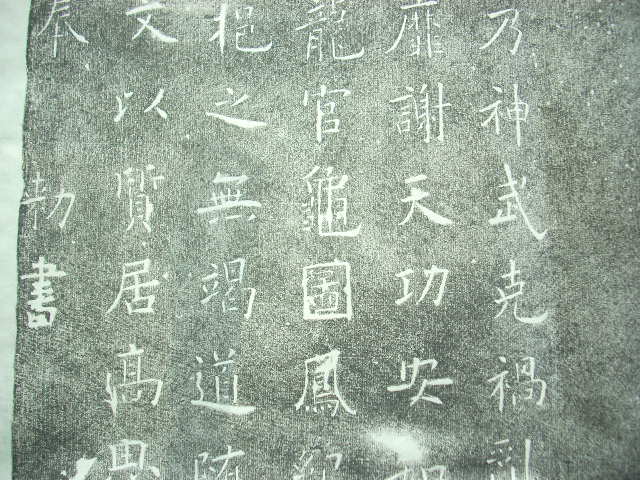 乃神武克禍亂
靡謝天功安知
龍官龜圖鳳紀
挹之無竭道随
文以質居高思
奉勅書